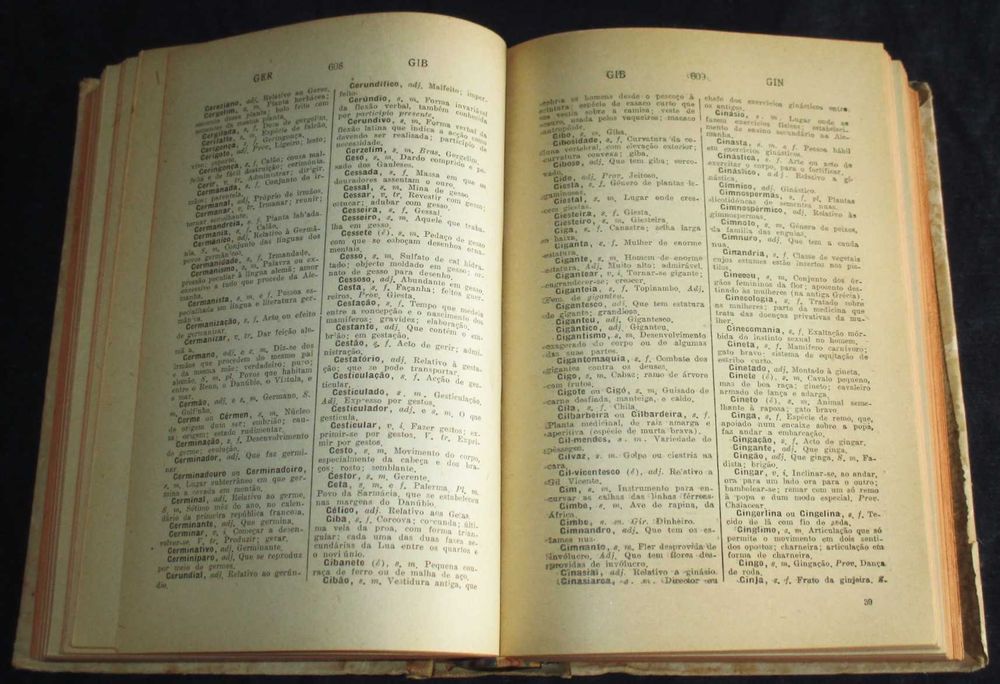 GER 608 GIB
Gergelim, s, m, Planta herbácea;
semente dessa planta; bolo feito com
Gerifalte, s, m, Espécie de falcão,
Geringonça, s, f, Calão; cousa mal-
feita e de fácil destruição; ceringonça.
Gerir, v, tr, Administrar; dirigir.
Germanada, s, f, Conjunto de ir-
mãos; parentela.
Germanal, adj, Próprio de irmãos.
Germanar, v, tr, Irmanar; reunir;
tornar semelhante.
Germania, s, f, Calão.
Germânico, adj, Relativo à Germâ-
nia, s, m, Conjunto das línguas dos
povos germânicos.
Germanidade, s, f, Irmandade.
Germanismo, s, m, Palavra ou ex-
pressão peculiar à língua alemã; amor
excessivo a tudo que procede da Ale-
manha.
Germanista, s, m, e f, Pessoa es-
pecializada em língua e literatura ger-
Germanização, s, f, Arte ou efeito
de germanizar.
Germanizar, v, tr, Dar feição ale-
mã a.
Germano, adj, e s, m, Diz-se dos
irmãos que procedem do mesmo pai
e da mesma mãe; verdadeiro; puro;
alemão, S, m, pl, Povos que habitam
entre o Reno, o Danúbio, o Vístula, e
o mar.
Germão, adj, e s, m, Germano, S,
m, Golfinho.
Germe ou Gérmen, s, m, Núcleo
de origem dum ser; embrião; cau-
sa; origem; estado rudimentar.
Germinação, s, f, Desenvolvimento
do germe; evolução.
Germinador, adj, Que faz germi-
nar.
Germinadouro ou Germinadoiro,
s, m, Lugar subterrâneo em que ger-
mina a cevada em montão.
Germinal, adj, Relativo ao germe,
S, m, Sétimo mês do ano, no calen-
dário da primeira república francesa.
Germinante, adj, Que germina.
Germinar, v, i, Começar a desen-
volver-se, V, tr, Produzir; gerar.
Germinativo, adj, Germinante.
Germiníparo, adj, Que se reproduz
por meio de germes.
Gerundial, adj, Relativo ao gerún-
dio
Gerundífico, adj, Malfeito; imper-
feito.
Gerúndio, s, m, Forma invariável
da flexão verbal, também conhecida
por particípio presente.
Gerundivo, s, m, Forma verbal da
flexão latina que indica a acção como
devendo ser realizada; particípio de
necessidade.
Gerzelim, s, m, Bras, Gergelim.
Geso, s, m, Dardo comprido e pe-
sado dos Gauleses.
Gessada, s, f, Massa em que os
douradores assentam o ouro.
Gessal, s, m, Mina de gesso.
Gessar, v, tr, Revestir com gesso;
estucar; adubar com gesso.
Gesseira, s, f, Gessal.
Gesseiro, s, m, Aquele que traba-
lha em gesso.
Gessete (ê), s, m, Pedaço de gesso
com que se esboçam desenhos orna-
mentais.
Gesso, s, m, Sulfato de cal hidra-
tado; objecto moldado em gesso; or-
nato de gesso para desenho.
Gessoso, adj, Abundante em gesso.
Gesta, s, f, Façanha; feitos guer-
reiros, Prov, Giesta.
Gestação, s, f, Tempo que medeia
entre a concepção e o nascimento dos
mamíferos; gravidez; elaboração.
Gestante, adj, Que contém o em-
brião; em gestação.
Gestão, s, f, Acto de gerir; admi-
nistração.
Gestatório, adj, Relativo à gesta-
ção; que se pode transportar.
Gesticulação, s, f, Acção de ges-
ticular.
Gesticulado, s, m, Gesticulação,
Adj, Expresso por gestos.
Gesticulador, adj, e s, m, O que
gesticula.
Gesticular, v, i, Fazer gestos; ex-
primir-se por gestos, V, tr, Expri-
mir por gestos.
Gesto, s, m, Movimento do corpo,
especialmente da cabeça e dos bra-
ços; rosto; semblante.
Gestor, s, m, Gerente.
Geta, s, m, e f, Palerma, Pl, m,
Povo da Sarmácia, que se estabeleceu
nas margens do Danúbio.
Gético, adj, Relativo aos Getas
Giba, s, f, Corcova; corcunda; últi-
ma vela da proa, com forma trian-
gular; cada uma das duas fases se-
cundárias da Lua entre os quartos e
o novilúnio.
Gibaneto (ê), s, m, Pequena cou-
raça de ferro ou de malha de aço.
Gibão, s, m, Vestidura antiga, que
GIB 609 GIN
cobria os homens desde o pescoço à
cintura; espécie de casaco curto que
se vestia sobre a camisa; veste de
couro, usada pelos vaqueiros; macaco
antropóide.
Gibo, s, m, Giba.
Gibosidade, s, f, Curvatura da co-
luna vertebral, com elevação exterior;
curvatura convexa; giba.
Giboso, adj, Que tem giba; corco-
vado.
Gido, adj, Prov, Jeitoso.
Giesta, s, f, Género de plantas le-
guminosas.
Giestal, s, m, Lugar onde cres-
cem giestas.
Giesteira, s, f, Giesta.
Giesteiro, s, m, Giesteira
Giga, s, f, Canastra; selha larga
e baixa.
Giganta, s, f, Mulher de enorme
estatura.
Gigante, s, m, Homem de enorme
estatura, Adj, Muito alto; admirável.
Gigantear, v, i, Tornar-se gigante;
engrandecer-se; crescer.
Giganteia, s, f, Topinambo, Adj,
Fem. de gigantes.
Gigantesco, adj, Que tem estatura
de gigante; grandioso.
Giganteu, adj, Gigantesco.
Gigântico, adj, Giganteu.
Gigantismo, s, m, Desenvolvimento
exagerado do corpo ou de algumas
das suas partes.
Gigantomaquia, s, f, Combate dos
gigantes contra os deuses.
Gigo, s, m, Cabaz; ramo de árvore
com frutos.
Gigote ou Gigó, s, m, Guisado de
carne desfiada, manteiga, e caldo.
Gila, s, f, Chila.
Gilbarbeira ou Gilbardeira, s, f,
Planta medicinal, de raiz amarga e
aperitiva (espécie de murta brava).
Gil-mendes, s, m, Variedade de
pêssegos.
Gilvaz, s, m, Golpe ou cicatriz na
cara.
Gil-vicentesco (ê), adj, Relativo a
Gil Vicente.
Gim, s, m, Instrumento para en-
curvar as calhas das linhas férreas.
Gimbe, s, m, Ave de rapina, da
África.
Gimbo, s, m, Gír, Dinheiro.
Gimnandro, adj, Que tem os es-
tames nus.
Gimnanto, s, m, Flor desprovida de
invólucro, Adj, Que tem flores des-
providas de invólucro,
Ginasial, adj, Relativo a ginásio.
Ginasiarca, s, m, Director ou
chefe dos exercícios ginásticos entre
os antigos.
Ginásio, s, m, Lugar onde se
fazem exercícios físicos; estabeleci-
mento de ensino secundário na Ale-
manha.
Ginasta, s, m, e f, Pessoa hábil
em exercícios ginásticos.
Ginástica, s, f, Arte ou acto de
exercitar o corpo, para o fortificar.
Ginástico, adj, Relativo a gi-
nástica.
Gímnico, adj, Ginástico.
Gimnospermas, s, f, pl, Plantas
dicotiledóneas de sementes nuas.
Gimnospérmico, adj, Relativo às
gimnospermas.
Gimnoto, s, m, Género de peixes,
da família das enguias.
Gimnuro, adj, Que tem a cauda
nua.
Ginandria, s, f, Classe de vegetais
cujos estames estão insertos nos pis-
tilos.
Gineceu, s, m, Conjunto dos ór-
gãos femininos da flor; aposento des-
tinado às mulheres (na antiga Grécia).
Ginecologia, s, f, Tratado sobre
as mulheres; parte da medicina que
trata das doenças privativas da mu-
lher.
Ginecomania, s, f, Exaltação mór-
bida do instinto sexual no homem.
Gineta, s, f, Mamífero carnívoro;
gato bravo; sistema de equitação de
estribo curto.
Ginetado, adj, Montado à gineta.
Ginete (ê), s, m, Cavalo pequeno,
mas de boa raça; gineto; cavaleiro
armado de lança e adarga.
Gineto (ê), s, m, Animal seme-
lhante à raposa; gato bravo.
Ginga, s, f, Espécie de remo, que,
apoiado num encaixe sobre a popa,
faz andar a embarcação.
Gingação, s, f, Acto de gingar.
Gingante, adj, Que ginga.
Gingão, adj, Que ginga, S, m, Fa-
dista; brigão.
Gingar, v, i, Inclinar-se, ao andar,
ora para um lado ora para o outro;
bambolear-se; remar com um só remo
à popa e dum modo especial, Prov,
Chalacear.
Gingerlina ou Gingelina, s, f, Te-
cido de lã com fio de seda.
Gínglimo, s, m, Articulação que só
permite o movimento em dois senti-
dos opostos; charneira; articulação em
forma de charneira.
Gingo, s, m, Gingação, Prov, Dança
de roda.
Ginja, s, f, Fruto da ginjeira, S.
39